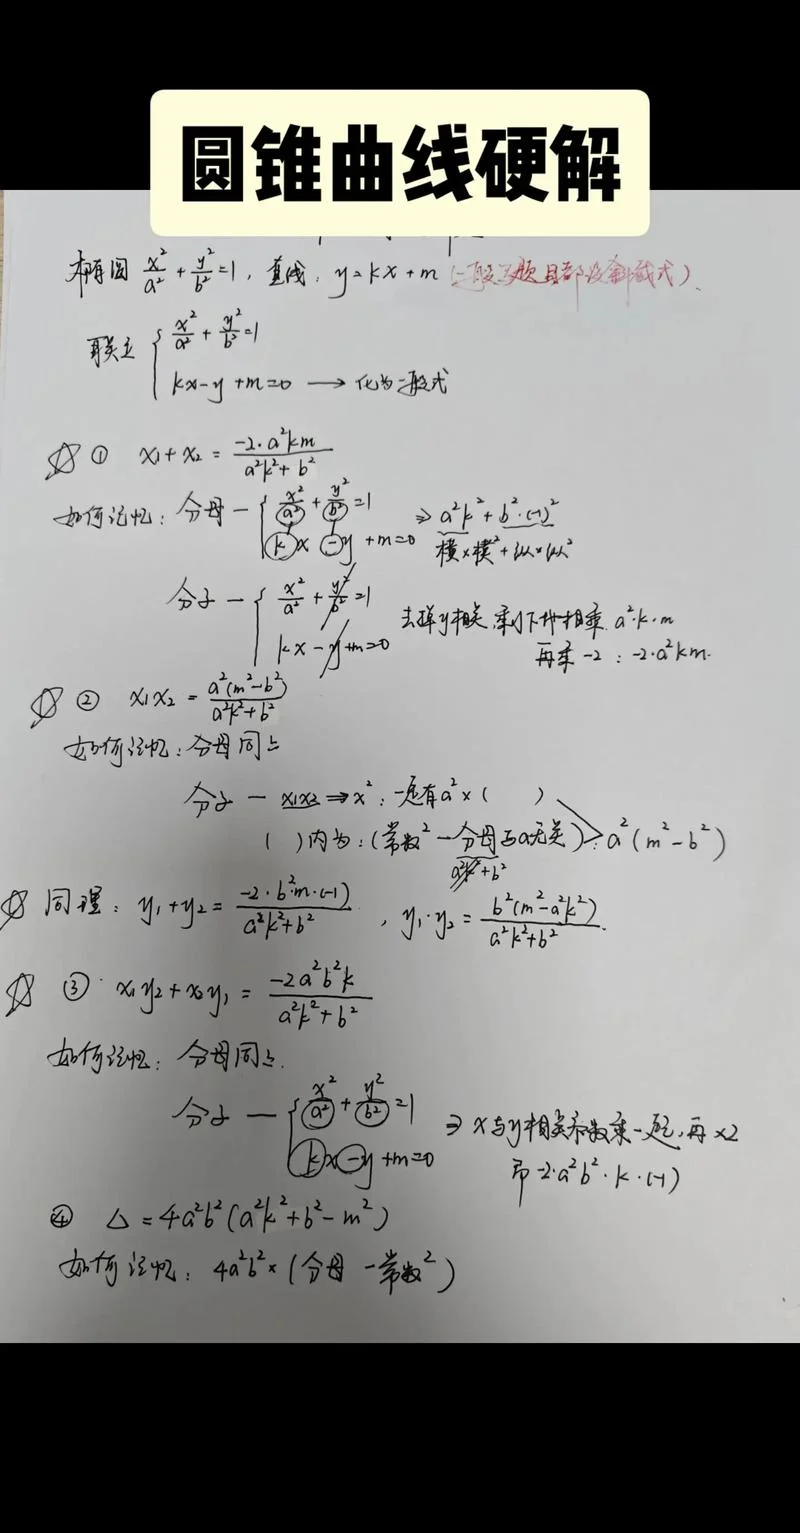 圆锥曲线硬解
椭圆 x²/a² + y²/b² = 1, 直线: y=kx+m (一般写题目都设斜截式).
联立 { x²/a² + y²/b² = 1
kx-y+m=0 → 化为一般式
☆ ① x₁+x₂ = -2·a²km / a²k²+b²
如何记忆: 分母 — { x²/a² + y²/b² = 1
kx-y+m=0 ⇒ a²k²+b²·(-1)²
横×横²+纵×纵²
分子 — { x²/a² + y²/b² = 1
kx-y+m=0 去掉y相关,剩下相乘 a²·k·m
再乘-2: -2·a²km.
☆ ② x₁x₂ = a²(m²-b²) / a²k²+b²
如何记忆: 分母同上
分子 — x₁x₂ ⇒ x²: 一定有a²×( )
( )内为: (常数²-分母与a无关): a²(m²-b²)
a²k²+b²
☆ 同理: y₁+y₂ = -2·b²m·(-1) / a²k²+b² , y₁·y₂ = b²(m²-a²k²) / a²k²+b².
☆ ③ x₁y₂+x₂y₁ = -2a²b²k / a²k²+b²
如何记忆: 分母同上.
分子 — { x²/a² + y²/b² = 1
kx-y+m=0 ⇒ x与y相关系数乘一起,再×2
即-2·a²b²·k·(-1)
④ △=4a²b²(a²k²+b²-m²)
如何记忆: 4a²b²×(分母-常数²)